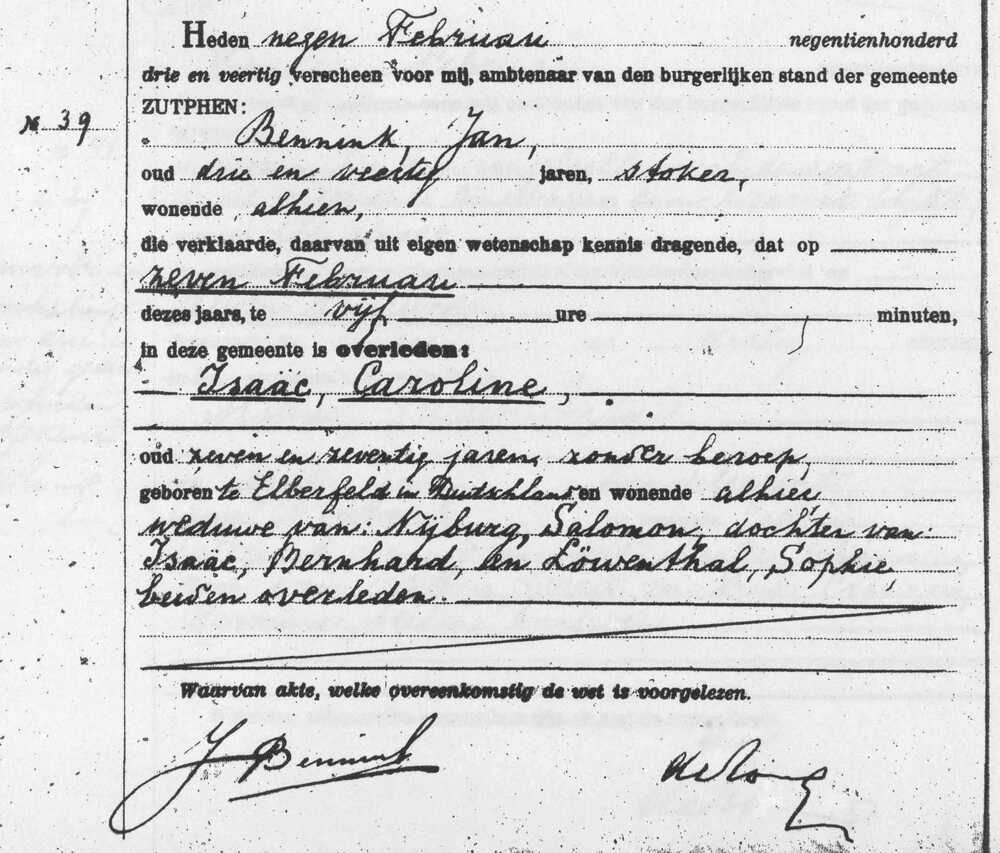 Heden negen Februari negentienhonderd
drie en veertig verscheen voor mij, ambtenaar van den burgerlijken stand der gemeente
ZUTPHEN:
№ 39
Bennink, Jan,
oud drie en veertig jaren, stoker,
wonende alhier,
die verklaarde, daarvan uit eigen wetenschap kennis dragende, dat op
zeven Februari
dezes jaars, te vijf ure minuten,
in deze gemeente is overleden:
Isaäc, Caroline,
oud zeven en zeventig jaren, zonder beroep,
geboren te Elberfeld in Duitschland en wonende alhier
weduwe van: Nijburg, Salomon, dochter van:
Isaäc, Bernhard, en Löwenthal, Sophie,
beiden overleden.
Waarvan akte, welke overeenkomstig de wet is voorgelezen.
J Bennink